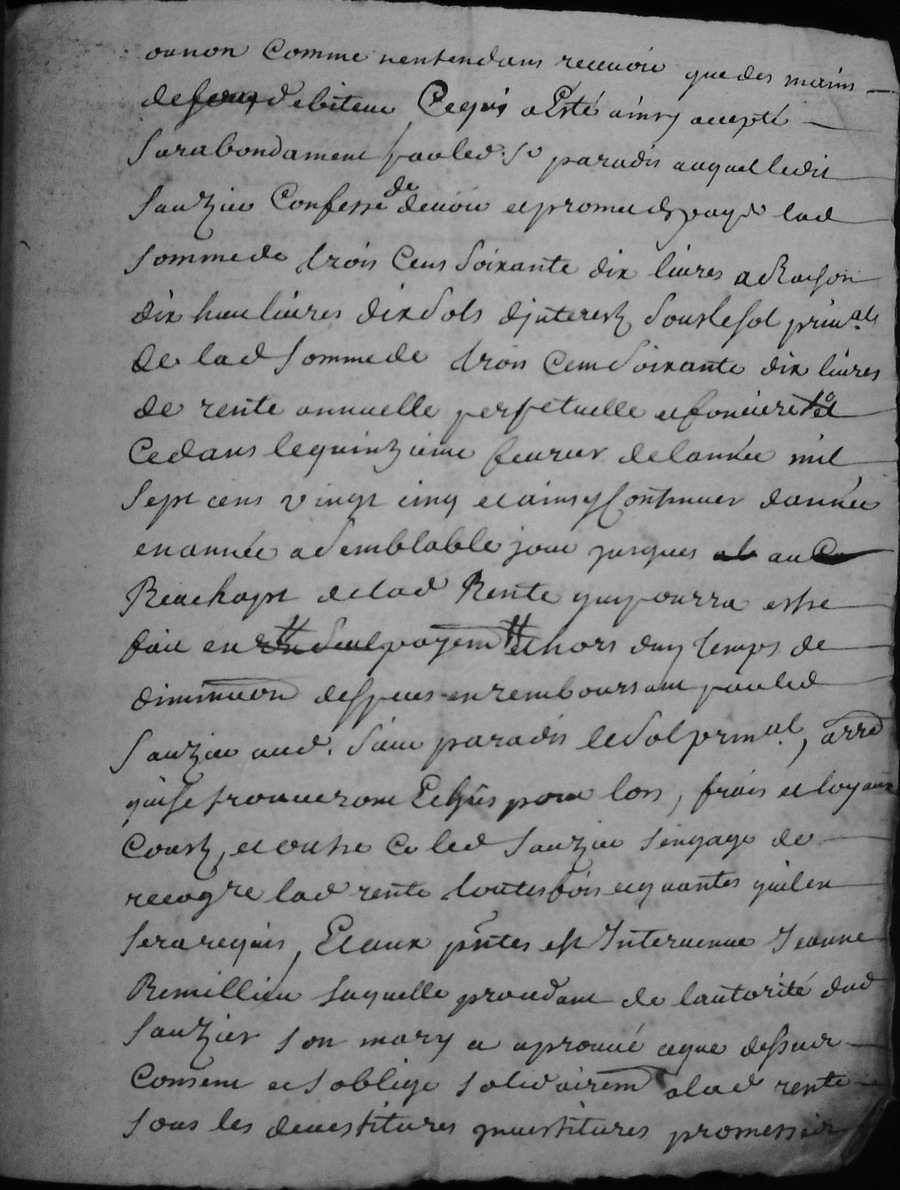 ou non comme nentendans recevoir que des mains
de debiteur Ce qui a Esté ainsy accepté
surabondament par led. Sr paradis auquel ledit
Sauzier Confesse de devoir et promet payer lad
somme de trois Cens soixante dix livres a Raison
dix huit livres dix sols dinterest sous le sol prinal
de lad somme de trois Cens soixante dix livres
de rente annuelle perpetuelle et fonciere
Ce dans le quinzieme fevrier de lannée mil
sept cens vingt cinq et ainsy Continuer dannée
en année a semblable jour jusques au
Reachapt de lad Rente quy pourra estre
fait en Un Seul payem et hors duy temps de
diminuon despeces en remboursant par led
Sauzier aud. Sieur paradis le Sol prinal, arre
qui se trouveront Echeüs pour lors, frais et loyaux
Coust, et outre Ce led Sauzier sengage de
recogre lad rente toutesfois et quantes quil en
sera requis, Et aux pntes est Intervenue Jeanne
Remillieu laquelle procedant de lautorité dud
Sauzier son mary a aprouvé ce que dessus
Consent et soblige solidairemt a lad rente
sous les devestitures investitures promesses